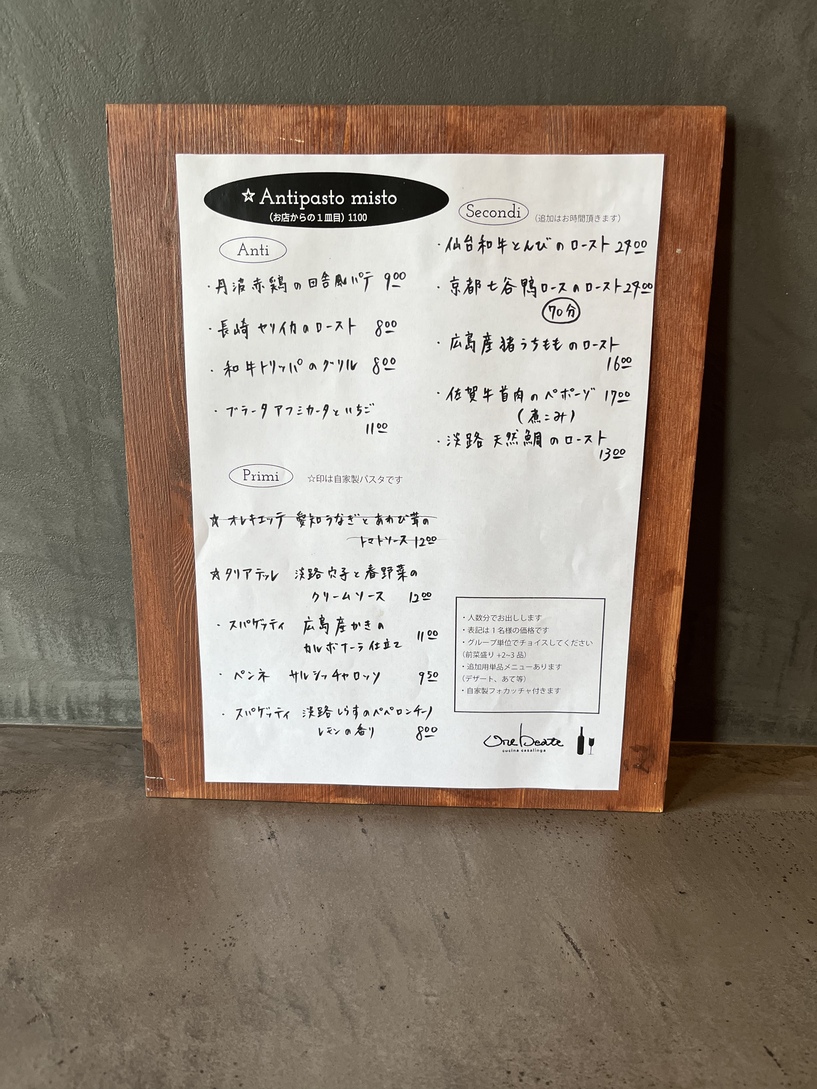 ☆Antipasto misto
(お店からの１皿目) 1100
Anti
・丹波赤鶏の田舎風パテ 900
・長崎 ヤリイカのロースト 800
・和牛トリッパのグリル 800
・ブラータアフミカータといちご
1100
Primi
☆印は自家製パスタです
☆オレキエッテ 愛知うなぎとあわび茸の
トマトソース 1200
☆タリアテッレ 淡路穴子と春野菜の
クリームソース 1200
・スパゲッティ 広島産かきの
カルボナーラ仕立て 1100
・ペンネ サルシッチャロッソ 950
・スパゲッティ 淡路しらすのペペロンチーノ
レモンの香り 800
Secondi
(追加はお時間頂きます)
・仙台和牛とんびのロースト 2400
・京都七谷鴨ロースのロースト 2400
70分
・広島産猪うちもものロースト
1600
・佐賀牛首肉のペポーゾ 1700
(煮こみ)
・淡路 天然鯛のロースト
1300
・人数分でお出しします
・表記は１名様の価格です
・グループ単位でチョイスしてください
(前菜盛り +2~3 品)
・追加用単品メニューあります
(デザート、あて等)
・自家製フォカッチャ付きます
cucina casalinga